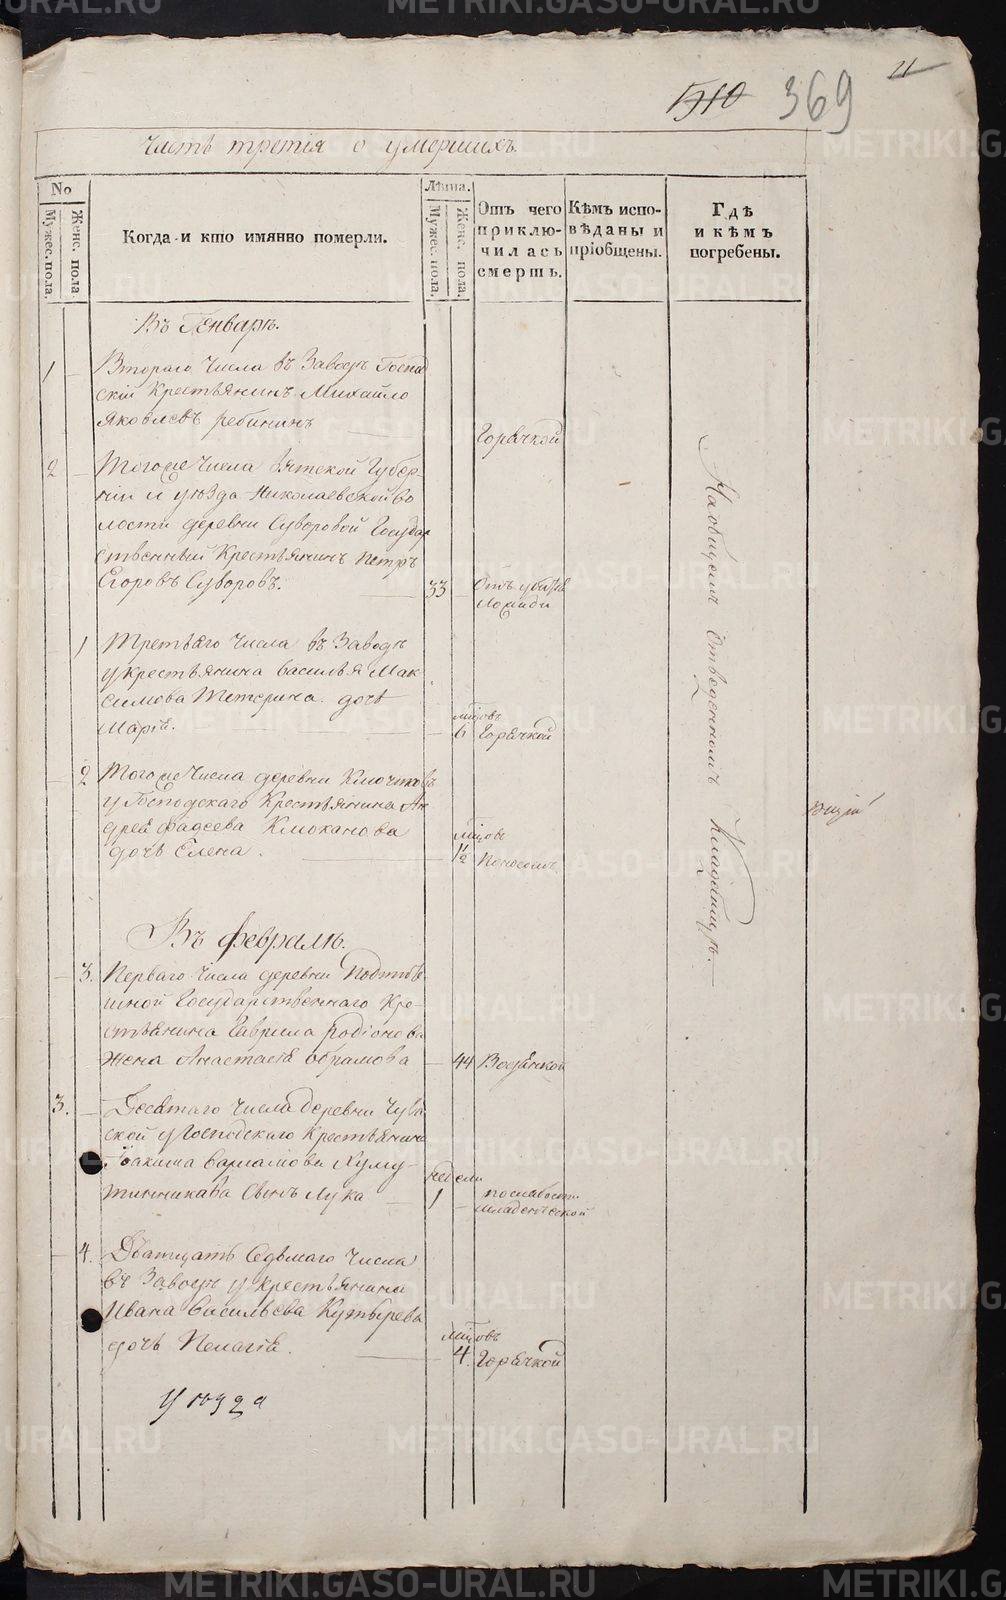 11
1310
369
Часть третія о умершихъ.
No
Мужес. пола.
Женс. пола
Когда и кто имянно померли.
Лѣта.
Мужес. пола.
Женс. пола.
Отъ чего приклю-
чилась
смерть.
Кѣмъ испо-
вѣданы и
пріобщены.
Гдѣ
и кѣмъ
погребены.
Въ Генварѣ.
1 Втораго Числа въ Заводѣ Господ
скій Крестьянинъ Михайло
Яковлевъ Ребининъ
Горячкой
2 Тогоже Числа Вятской Губер-
ніи и уѣзда Николаевской во
лости деревни Суворовой Государ
ственный Крестьянинъ Петръ
Егоровъ Суворовъ.
33
Отъ
лошади
1 Третьяго Числа въ Заводѣ
у крестьянина Василья Мак
симова Тетерина дочь
Марія.
мцовъ
6 Горячкой
2 Тогоже Числа деревни
у Господскаго Крестьянина Ан
дрея Фадеева Клюканова
дочь Елена.
мцовъ
1½ Поносомъ
На общемъ отведенномъ Кладбищѣ.
ющій
Въ Февралѣ.
3. Перваго Числа деревни
Государственнаго Кре-
стьянина Гаврила Родіонова
Жена Анастасія Абрамова
44 Водянкой
3. Десятаго Числа деревни
ской у Господскаго Крестьянина
Іоакима Варламова Хому-
тинникова Сынъ Лука
недели
1
по слабости
младенческой
4. Дватцать Седьмаго Числа
въ Заводѣ у крестьянина
Ивана Васильева
дочь Пелагія.
мцовъ
4. Горячкой
уѣзда
METRIKI.GASO-URAL.RU